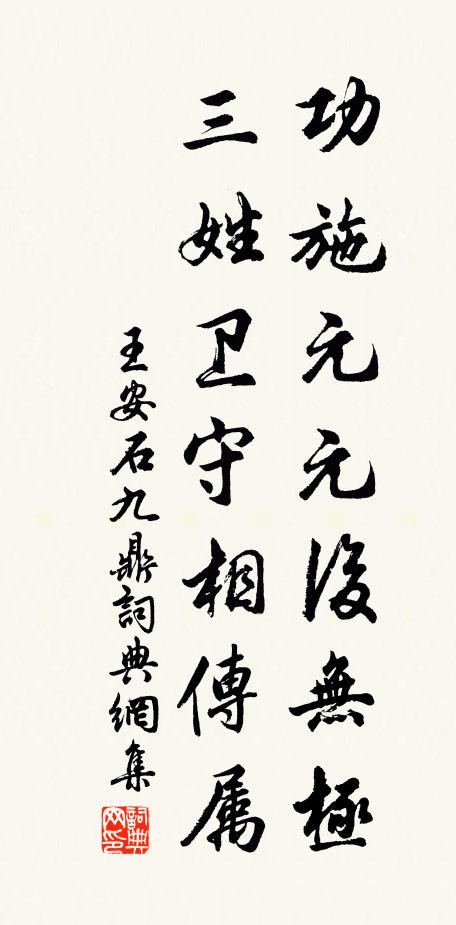 功施元元後無極
三姓卫守相傳属
王安石九鼎詞典網集
詞典网印